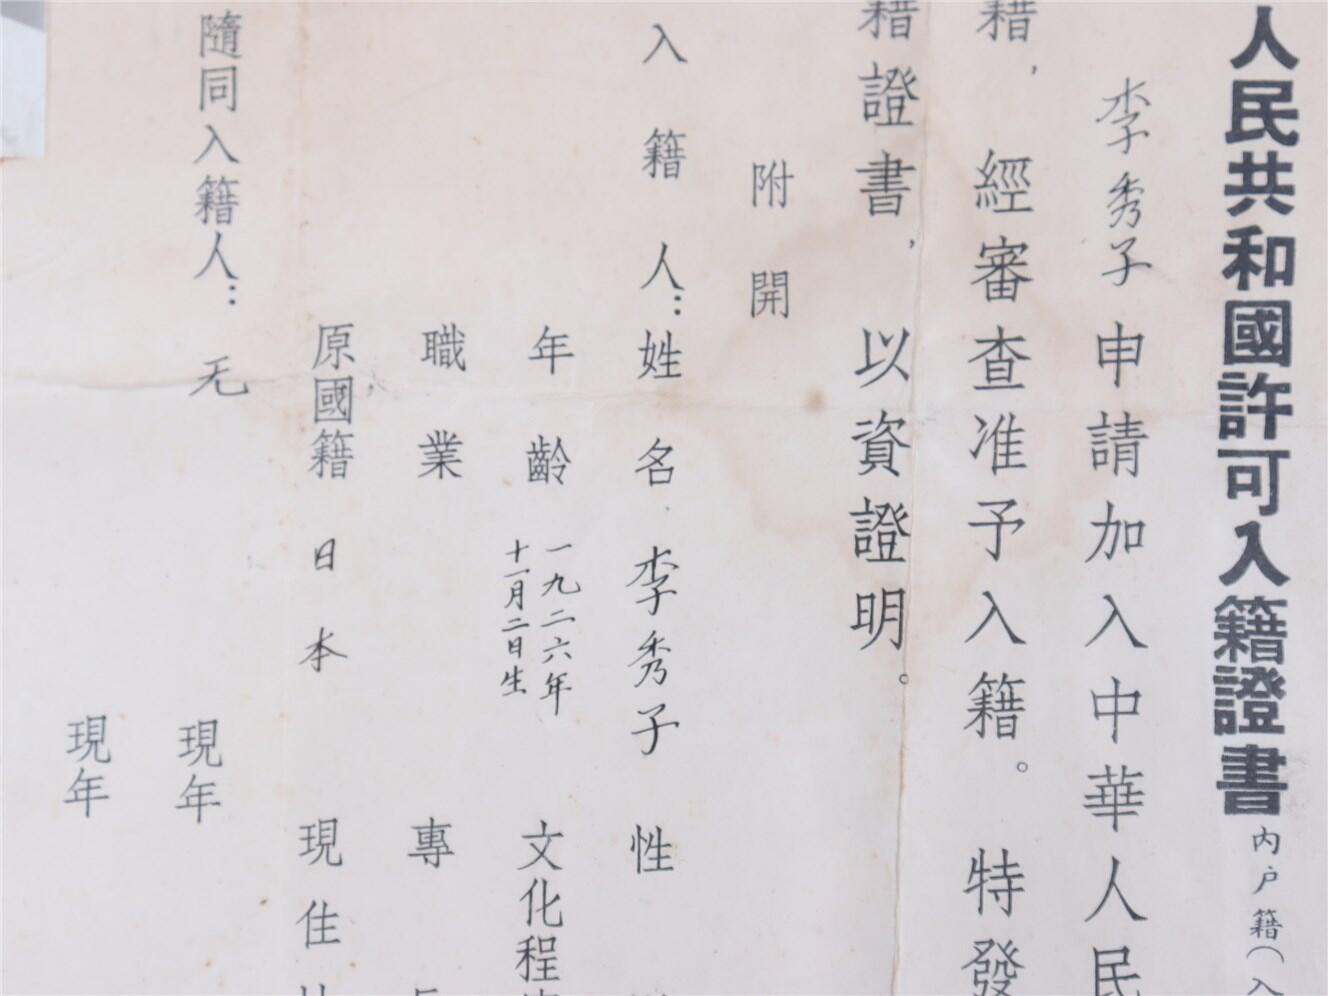 人民共和國許可入籍證書
内户籍（入
李秀子申請加入中華人民
籍，經審查准予入籍。特發
籍證書，以資證明。
附開
入籍人：姓名 李秀子 性
年齡 一九二六年十一月二日生 文化程
職業 專
原國籍 日本 現住
隨同入籍人：无 現年
現年